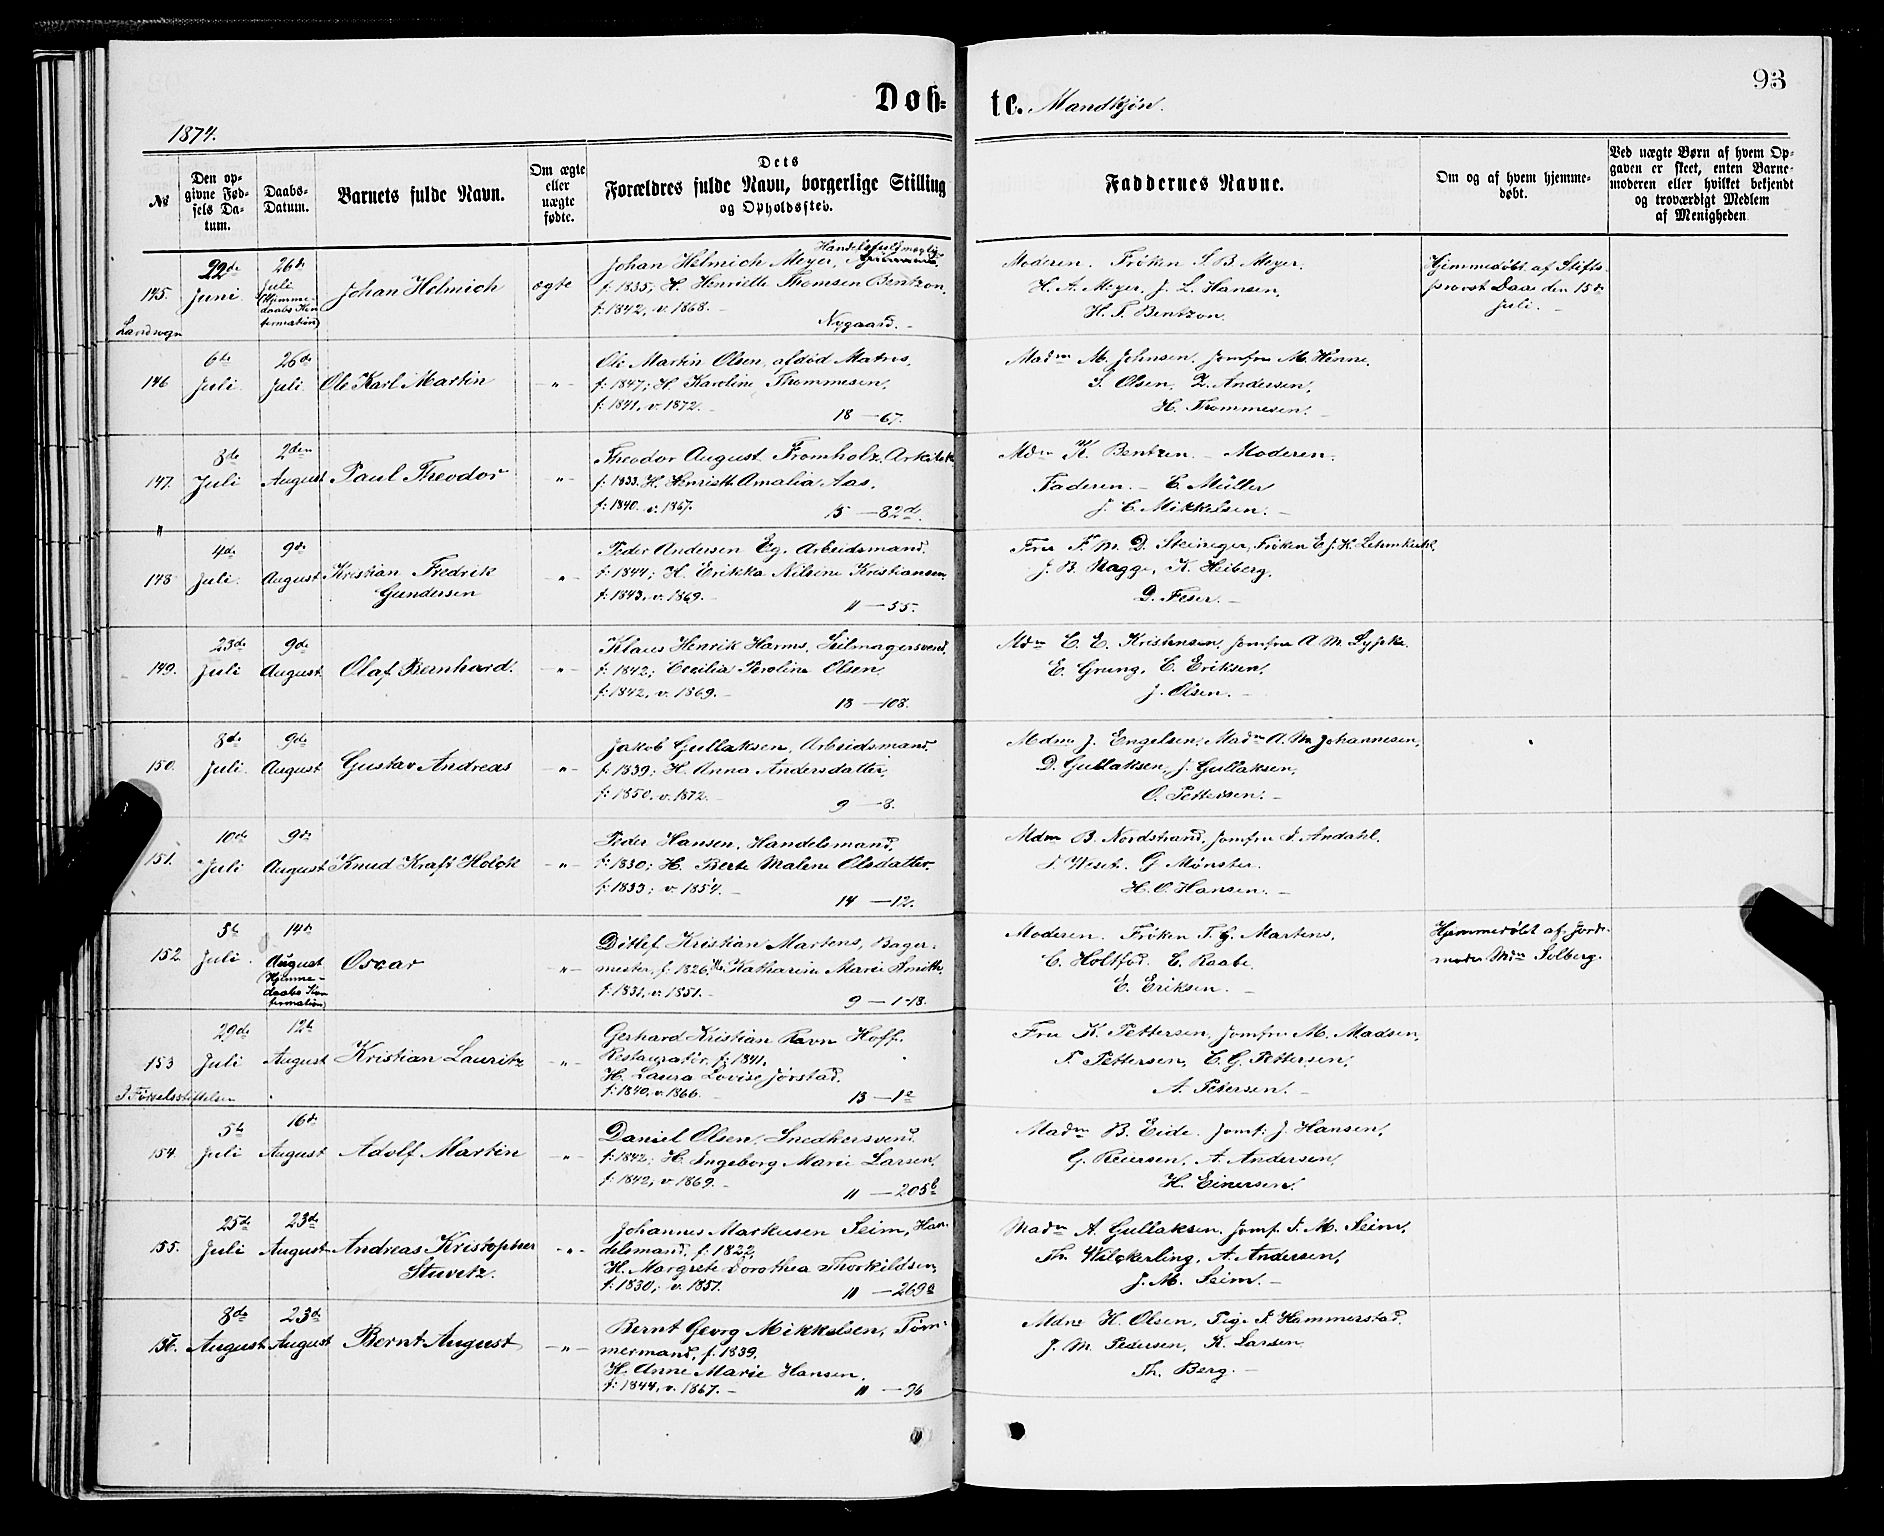 93
Døb= te. Mandkjøn.
1874.
№
Den op=
givne Fød=
sels Da=
tum.
Daabs=
Datum.
Barnets fulde Navn.
Om ægte
eller
uægte
fødte.
Dets
Forældres fulde Navn, borgerlige Stilling
og Opholdssted.
Faddernes Navne.
Om og af hvem hjemme=
døbt.
Ved uægte Børn af hvem Op=
gaven er skeet, enten Barne=
moderen eller hvilket bekjendt
og troværdigt Medlem
af Menigheden
145.
Landsogn
22de
Juni
26de
Juli
(Hjemme-
daabs Kon
firmation)
Johan Helmich
ægte
Handelsfuldmægtig
Johan Helmich Meyer,
f: 1835; H. Henriette Thomsen Bentzon,
f: 1842, v. 1868. -
Nygaard. -
Moderen. Frøken S. B. Meyer.
H. A. Meyer, J. L. Hansen,
H. F. Bentzon.
Hjemmedøbt af Stifts
provst Daae den 15de
Juli. -
146
6te
Juli
26de
Juli
Ole Karl Martin
-"-
Ole Martin Olsen, afdød Matros,
f: 1847; H. Karoline Thommesen,
f: 1841, v. 1872. -
18 - 67.
Madm M. Johnsen. Jomfru M. Hinne.
S. Olsen, Z. Andersen,
H. Trommesen. -
147.
"
8de
Juli
2den
August
Paul Theodor
-"-
Theodor August Fromholz. Arkitekt
f: 1833. H. Henriette Amalia Aas,
f: 1840. v. 1867.
15 - 82d.
Mdm K. Bentzen. - Moderen.
Faderen. - E. Müller
J. C. Mikkelsen. -
148
4de
Juli.
9de
August
Kristian Fredrik
Gundersen
-"-
Peder Andersen Eg. Arbeidsmand.
f: 1844; H. Erikka Nilsine Kristiansen,
f: 1843, v. 1869. -
11 - 55.
Fru F. M. D. Steiniger, Frøken E. J. K. Lehmkuhl,
J. B. Magge, K. Heiberg.
D. Feser. -
149.
23de
Juli
9de
August
Olaf Bernhard.
-"-
Klaus Henrik Harms, Seilmagersvend.
f: 1842; Cecilia Karoline Olsen
f: 1842, v. 1869. -
18 - 108.
Mdm C. E. Kristensen, Jomfru A. M. Sypke.
E. Grung, C. Eriksen,
J. Olsen. -
150.
8de
Juli.
9de
August
Gustav Andreas
-"-
Jakob Gullaksen, Arbeidsmand.
f: 1839; H. Anna Andersdatter,
f: 1850. v. 1872. -
9 - 8.
Mdm J. Engelsen, Madm A. M. Johannesen,
D. Gullaksen, J. Gullaksen,
O. Pettersen. -
151.
10de
Juli
9de
August
Knud Kraft Holck
-"-
Peder Hansen, Handelsmand.
f: 1830; H. Berte Malene Olsdatter.
f: 1833; v. 1854. -
14 - 12.
Mdm B. Nordstrand, Jomfru J. Andahl.
G. Mønster.
H. O. Hansen. -
152.
5te
Juli.
14de
August
(Hjemme-
daabs Kon
firmation)
Oscar
-"-
Ditlef Kristian Martens, Bager-
mester, f: 1826, H. Katharine Marie Smith,
f: 1831, v. 1851. -
9 - 1-18.
Moderen. Frøken T. G. Martens,
C. Holtfod. E. Raabe.
E. Eriksen. -
Hjemmedøbt af Jord-
moder Mdm Solberg.
153
I Fødselsstiftelsen
29de
Juli
12te
August
Kristian Lauritz
-"-
Gerhard Kristian Ravn Hoff.
Restauratør, f: 1841.
H. Laura Lovise Jørstad.
f: 1840, v. 1866. -
13 - 1e
Fru K. Pettersen, Jomfru M. Madsen,
F. Pettersen, C. G. Pettersen,
A. Petersen. -
154.
5te
Juli
16de
August
Adolf Martin
-"-
Daniel Olsen, Snedkersvend.
f: 1842; H. Ingeborg Marie Larsen,
f: 1842, v. 1869. -
11 - 205b
Madm B. Eide. Jomf: J. Hansen,
G. Reiersen, A. Andersen,
H. Einersen.
155.
25de
Juli
23de
August
Andreas Kristopher
Stuvetz.
-"-
Johannes Markusen Seim, Han-
delsmand, f: 1822,
H. Margrete Dorothea Thorkildsen,
f: 1830; v. 1851.
11 - 269a
Madm A. Gullaksen, Jomf. J. M. Seim,
Th. Wilckerling, A. Andersen,
J. M. Seim. -
156.
8de
August
23de
August
Bernt August
-"-
Bernt Georg Mikkelsen, Tøm-
mermand, f: 1839.
H. Anne Marie Hansen.
f: 1844, v. 1867. -
11 - 96
Mdme H. Olsen, Pige J. Hammerstad.
J. M. Pedersen, K. Larsen,
Th. Berg. -